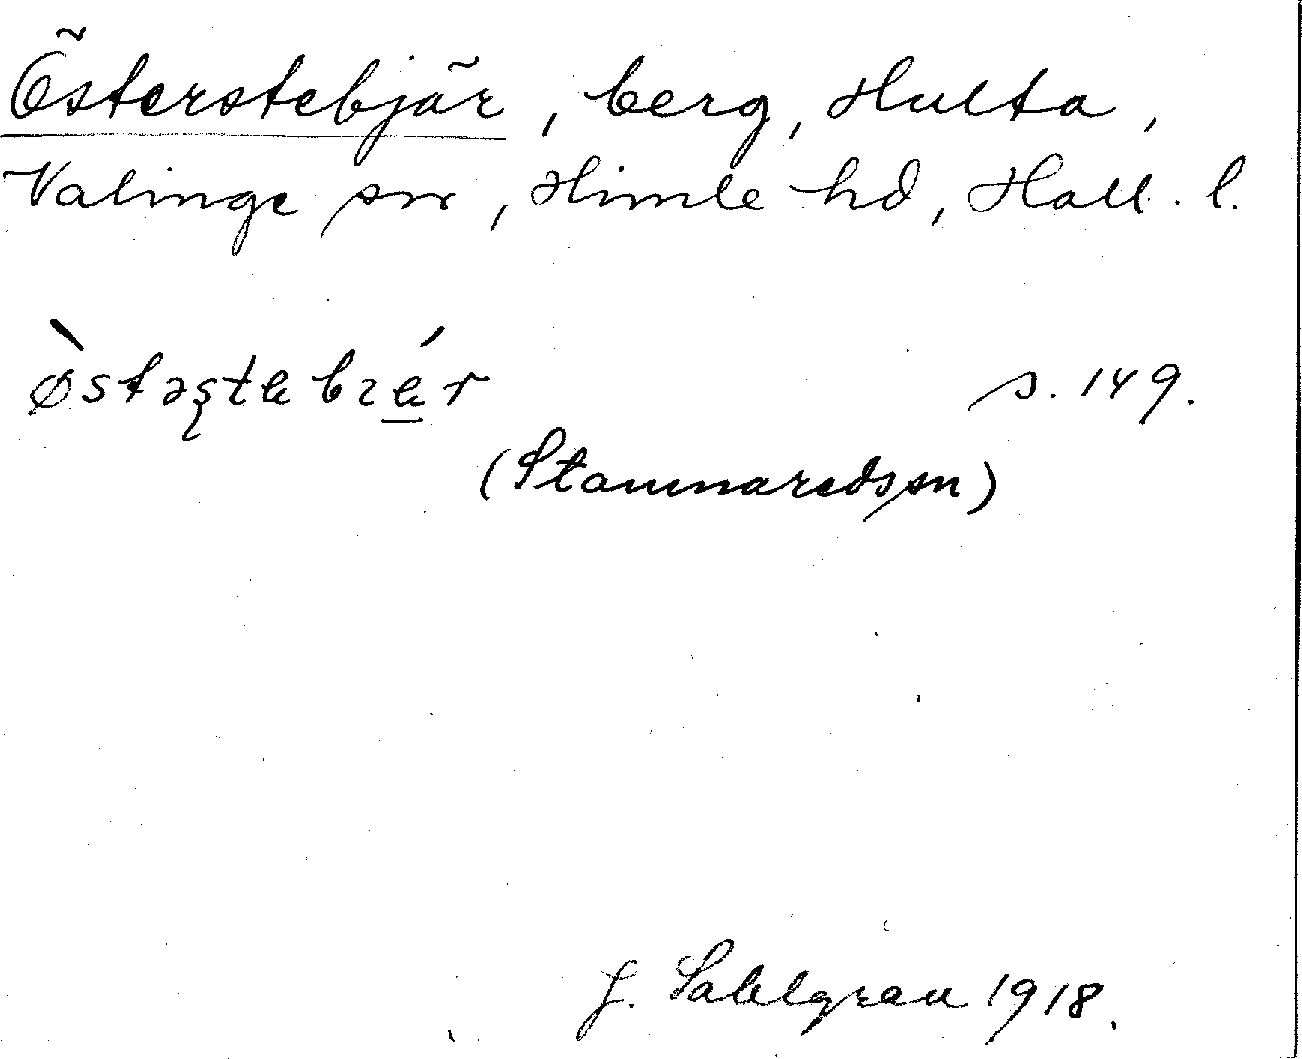 Österstebjär, berg, Hulta,
Valinge sn, Himle hd, Hall. l.
ø̀stəʂtebɪér s. 149.
(Stamnaredssn)
J. Sahlgren 1918.